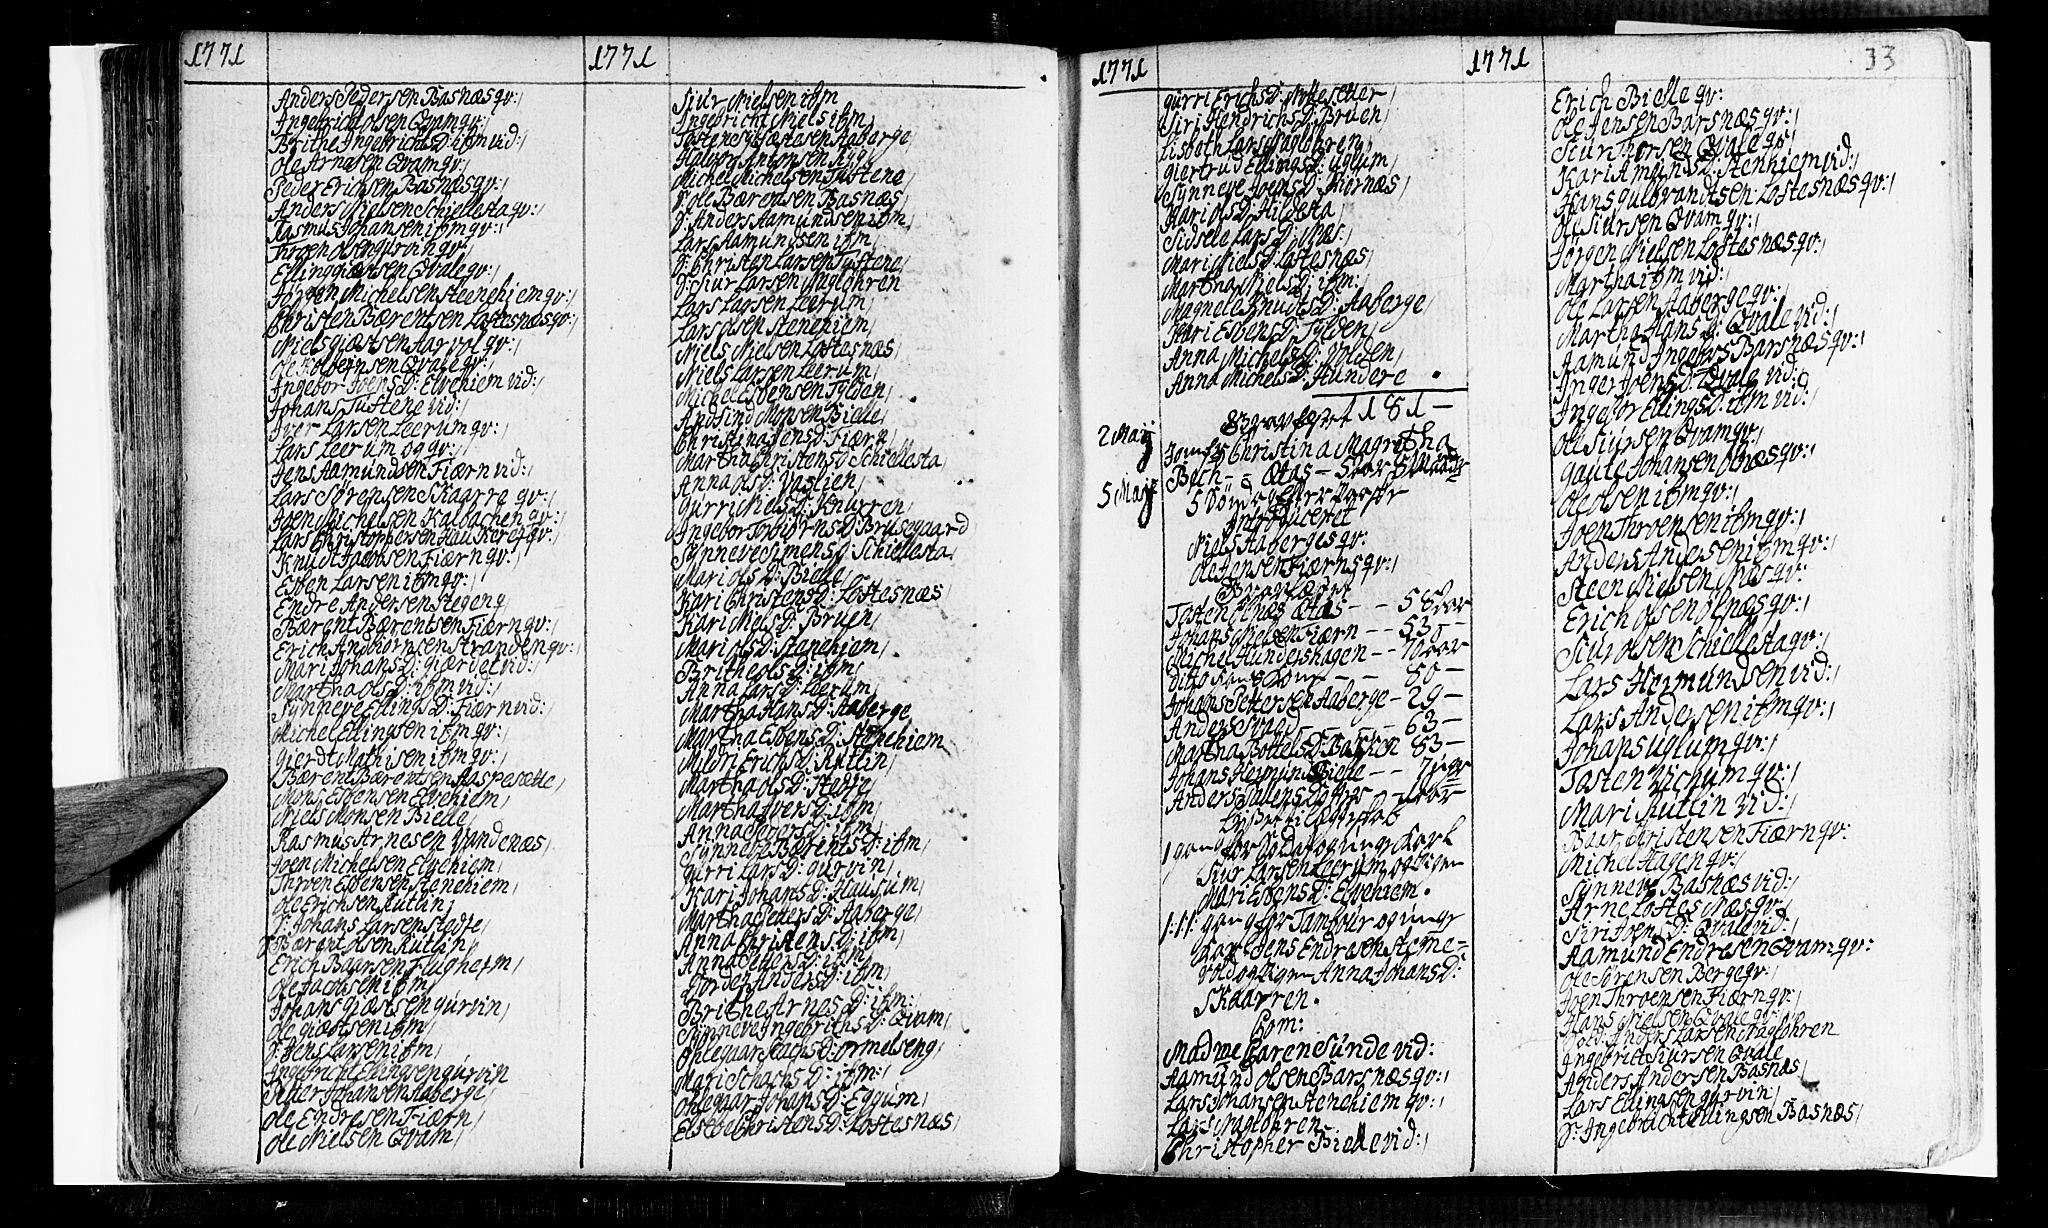 1771
Anders Pedersen Basnæs qv:/
Ingebricht Olsen Qvam qv:/
Brithe Ingebrichts D: ibm vid:/
Ole Arnesen Qvam qv:/
Peder Erichsen Basnæs qv:/
Anders Nielsen Schiellesta qv:/
Rasmus Johansen ibm qv:/
Throen Olsen gurvin qv:/
Elling giærsen Qvale qv:/
Jørgen Michelsen Steenehiem qv:/
Christen Bærentsen Loftesnæs qv:/
Niels giæstsen Aarvol qv:/
Ole Kolbeinsen Qvale qv:/
Ingebor Joens D: Elvehiem vid:/
Johans Tuftene vid:/
Iver Larsen Leerum qv:/
Lars Leerum og qv:/
Jens Aamundsen Fiærn vid:/
Lars Sørensen Skaarre qv:/
Joen Michelsen Kalbachen qv:/
Lars Christophersen Haukere qv:/
Knudt Jacobsen Fiærn qv:/
Esben Larsen ibm qv:/
Endre Andersen Stegeng
Bærent Bærentsen Fiærn qv:/
Erich Andbiørnsen Stranden qv:/
Mari Johans D: giærdet vid:/
Martha Ols D: ibm vid:/
Synneve Ellings D: Fiærn vid:/
Michel Ellingsen ibm qv:/
Gierdt Mathisen ibm qv:/
Bærent Bærentsen Aaspesætte/
Mons Esbensen Elvehiem/
Niels Monsen Bielle/
Rasmus Arnesen Vandenæs/
Joen Michelsen Elvehiem/
Throen Esbensen Stenehiem/
Ole Erichsen Rutlin/
D: Johans Larsen Stedje/
D: Bærent Olsen Rutlin/
Erich Baarsen Flughejm/
Ole Jachsen ibm/
Johans giæstsen gurvin/
Ole giæstsen ibm/
D: Jens Larsen ibm/
Ingebricht Ellingsen gurvin
Peder Johansen Aaberge/
Ole Endresen Fiærn/
Ole Nielsen Qvam/
1771
Siur Nielsen ibm
Ingebricht Niels ibm/
Tosten Sylfæstesen Aaberge/
Halvor Antonsen Rygg/
Michel Michelsen Tuftene/
D: Ole Bærentsen Basnæs/
D: Anders Aamundsen ibm/
Lars Aamundsen ibm/
D: Christen Larsen Tuftene/
D: Siur Larsen Nagløhren
Lars Larsen Leerum/
Lars Olsen Stenehiem/
Niels Nielsen Loftesnæs/
Niels Larsen Leerum/
Michel Esbensen Tylden/
Andsind Monsen Bielle/
Christina Jens D: Fiærn/
Martha Christens D: Schiellesta/
Anna Ols D: Vaslien/
Gurri Niels D: Knuxren/
Ingebor Torbiørns D: Brusegaard
Synneve Simens D: Schiellesta/
Mari Ols D: Bielle/
Kari Christens D: Loftesnæs/
Kari Niels D: Bruen/
Mari Ols D: Stenehiem/
Brithe Ols D: ibm/
Anna Lars D: Leerum/
Martha Hans D: Aaberge
Martha Esbens D: Stenehiem
Mildri Erichs D: Rutlin/
Martha Ols D: Stedje/
Martha Ivers D: ibm/
Anna Peders D: ibm/
Synneve Bærents D: ibm/
Gurri Lars D: gurvin/
Kari Johans D: Hausum/
Martha Petters D: Aaberge/
Anna Christens D: ibm/
Anna Petters D: ibm/
Jordet Anders D: ibm/
Brithe Arnes D: ibm:/
Synneve Ingebriths D: Qvam/
Ohlegaar Jachs D: Ormelseng/
Mari Schachs D: ibm:/
Ohlegaar Johans D: Eggum/
Elsebe Christens D: Loftesnæs/
1771
gurri Erichs D: Nottesetter
Siri Hendrichs D: Bruen/
Lisbeth Lars D: Nagløhren/
giertrud Ellings D: Uglum/
Synneve Joens D: Kiornæs/
Kari Ols D: Hildesta/
Sidsele Lars D: Næs:/
Mari Niels D: Loftesnæs/
Martha Niels D: ibm:/
Magnele Knudts D: Aaberge/
Kari Esbens D: Tylden/
Anna Michels D: Volden/
Anna Michels D: Hundere.
181 –
2 Maij
Jomfr: Christina Magretha
Bech – Ætas –
5 Maij
Introduceret
Niels Aaberges qv:
Ole Jensen Fiærns qv:/
Tosten Ølnæs Ætas – – 58
Johans Nielsen Fiærn – – 53 –
Michel Hundershagen – –
Ditto
Johans Pettersen Aaberge – 29 –
Anders Svard – – – – 63 –
Martha Bottels D: 83 –
Johans Hermuns Bielle – –
Anders
1 gang for
Siur Larsen Leerum og
Mari Esbens D: Elvehiem.
1:11 gang for Tambour og ungr
Karl Jens Endresen
Anna Johans D:
Skaarren.
Com:
Madme Caren Sunde vid:
Aamund Olsen Barsnæs qv:/
Lars Johansen Stenehiem qv:/
Lars Nagløhren
Christopher Bielle vid:/
1771
33
Erich Bielle qv:
Ole Jensen Barsnæs qv:/
Siur Thorsen Qvale qv:/
Kari Amunds D: Stenhiem vid:/
Hans gulbrandtsen Loftesnæs qv:/
Ole Siursen Qvam qv:/
Jørgen Nielsen Loftesnæs qv:/
Martha ibm vid:/
Ole Larsen Aaberge qv:/
Martha Hans D: Qvale vid:/
Aamund Ingebors Barsnæs qv:/
Inger Joens D: Qvale vid:/
Ingebor Ellings D: ibm vid:/
Ole Siursen Qvam qv:/
Gaute Johansen Næs qv:/
Ole Olsen ibm qv:/
Joen Throensen ibm qv:/
Anders Andersen ibm qv:/
Steen Nielsen Næs qv:
Erich Olsen Ølnæs qv:/
Siur Olsen Schiellesta qv:/
Lars Hermundsen vid:/
Lars Andersen ibm qv:/
Johans Uglum qv:/
Tosten Vichum qv:/
Mari Rutlin vid:/
Baar Christensen Fiærn qv:
Michel Hagen qv:/
Synneve Basnæs vid:/
Arne Loftesnæs qv:/
Siri Joens D: Qvale vid:/
Aamund Endresen Qvam qv:
Ole Sørensen Berge qv:/
Joen Throensen Fiærn qv:/
Hans Nielsen Qvale qv:/
Sold: Anders Larsen Nagløhren
Ingebrict Siursen Qvale
Anders Andersen Basnæs/
Lars Ellingsen gurvin/
D: Ingebricht Ellingsen Basnæs/